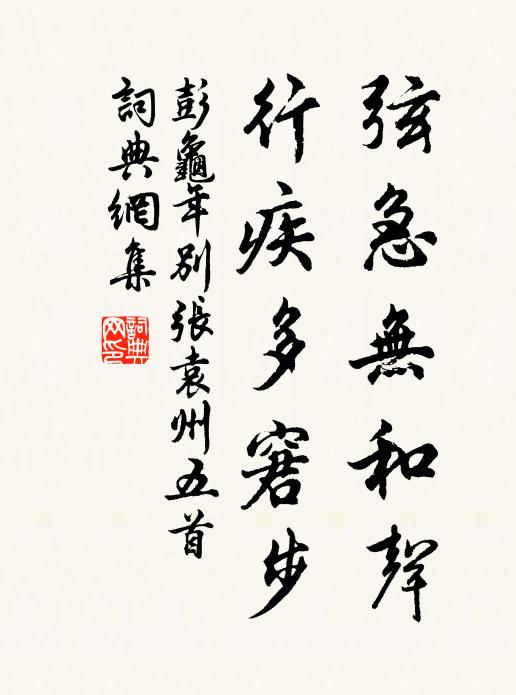 弦急無和聲
行疾多窘步
彭龜年別張袁州五首
詞典網集
詞典
网印